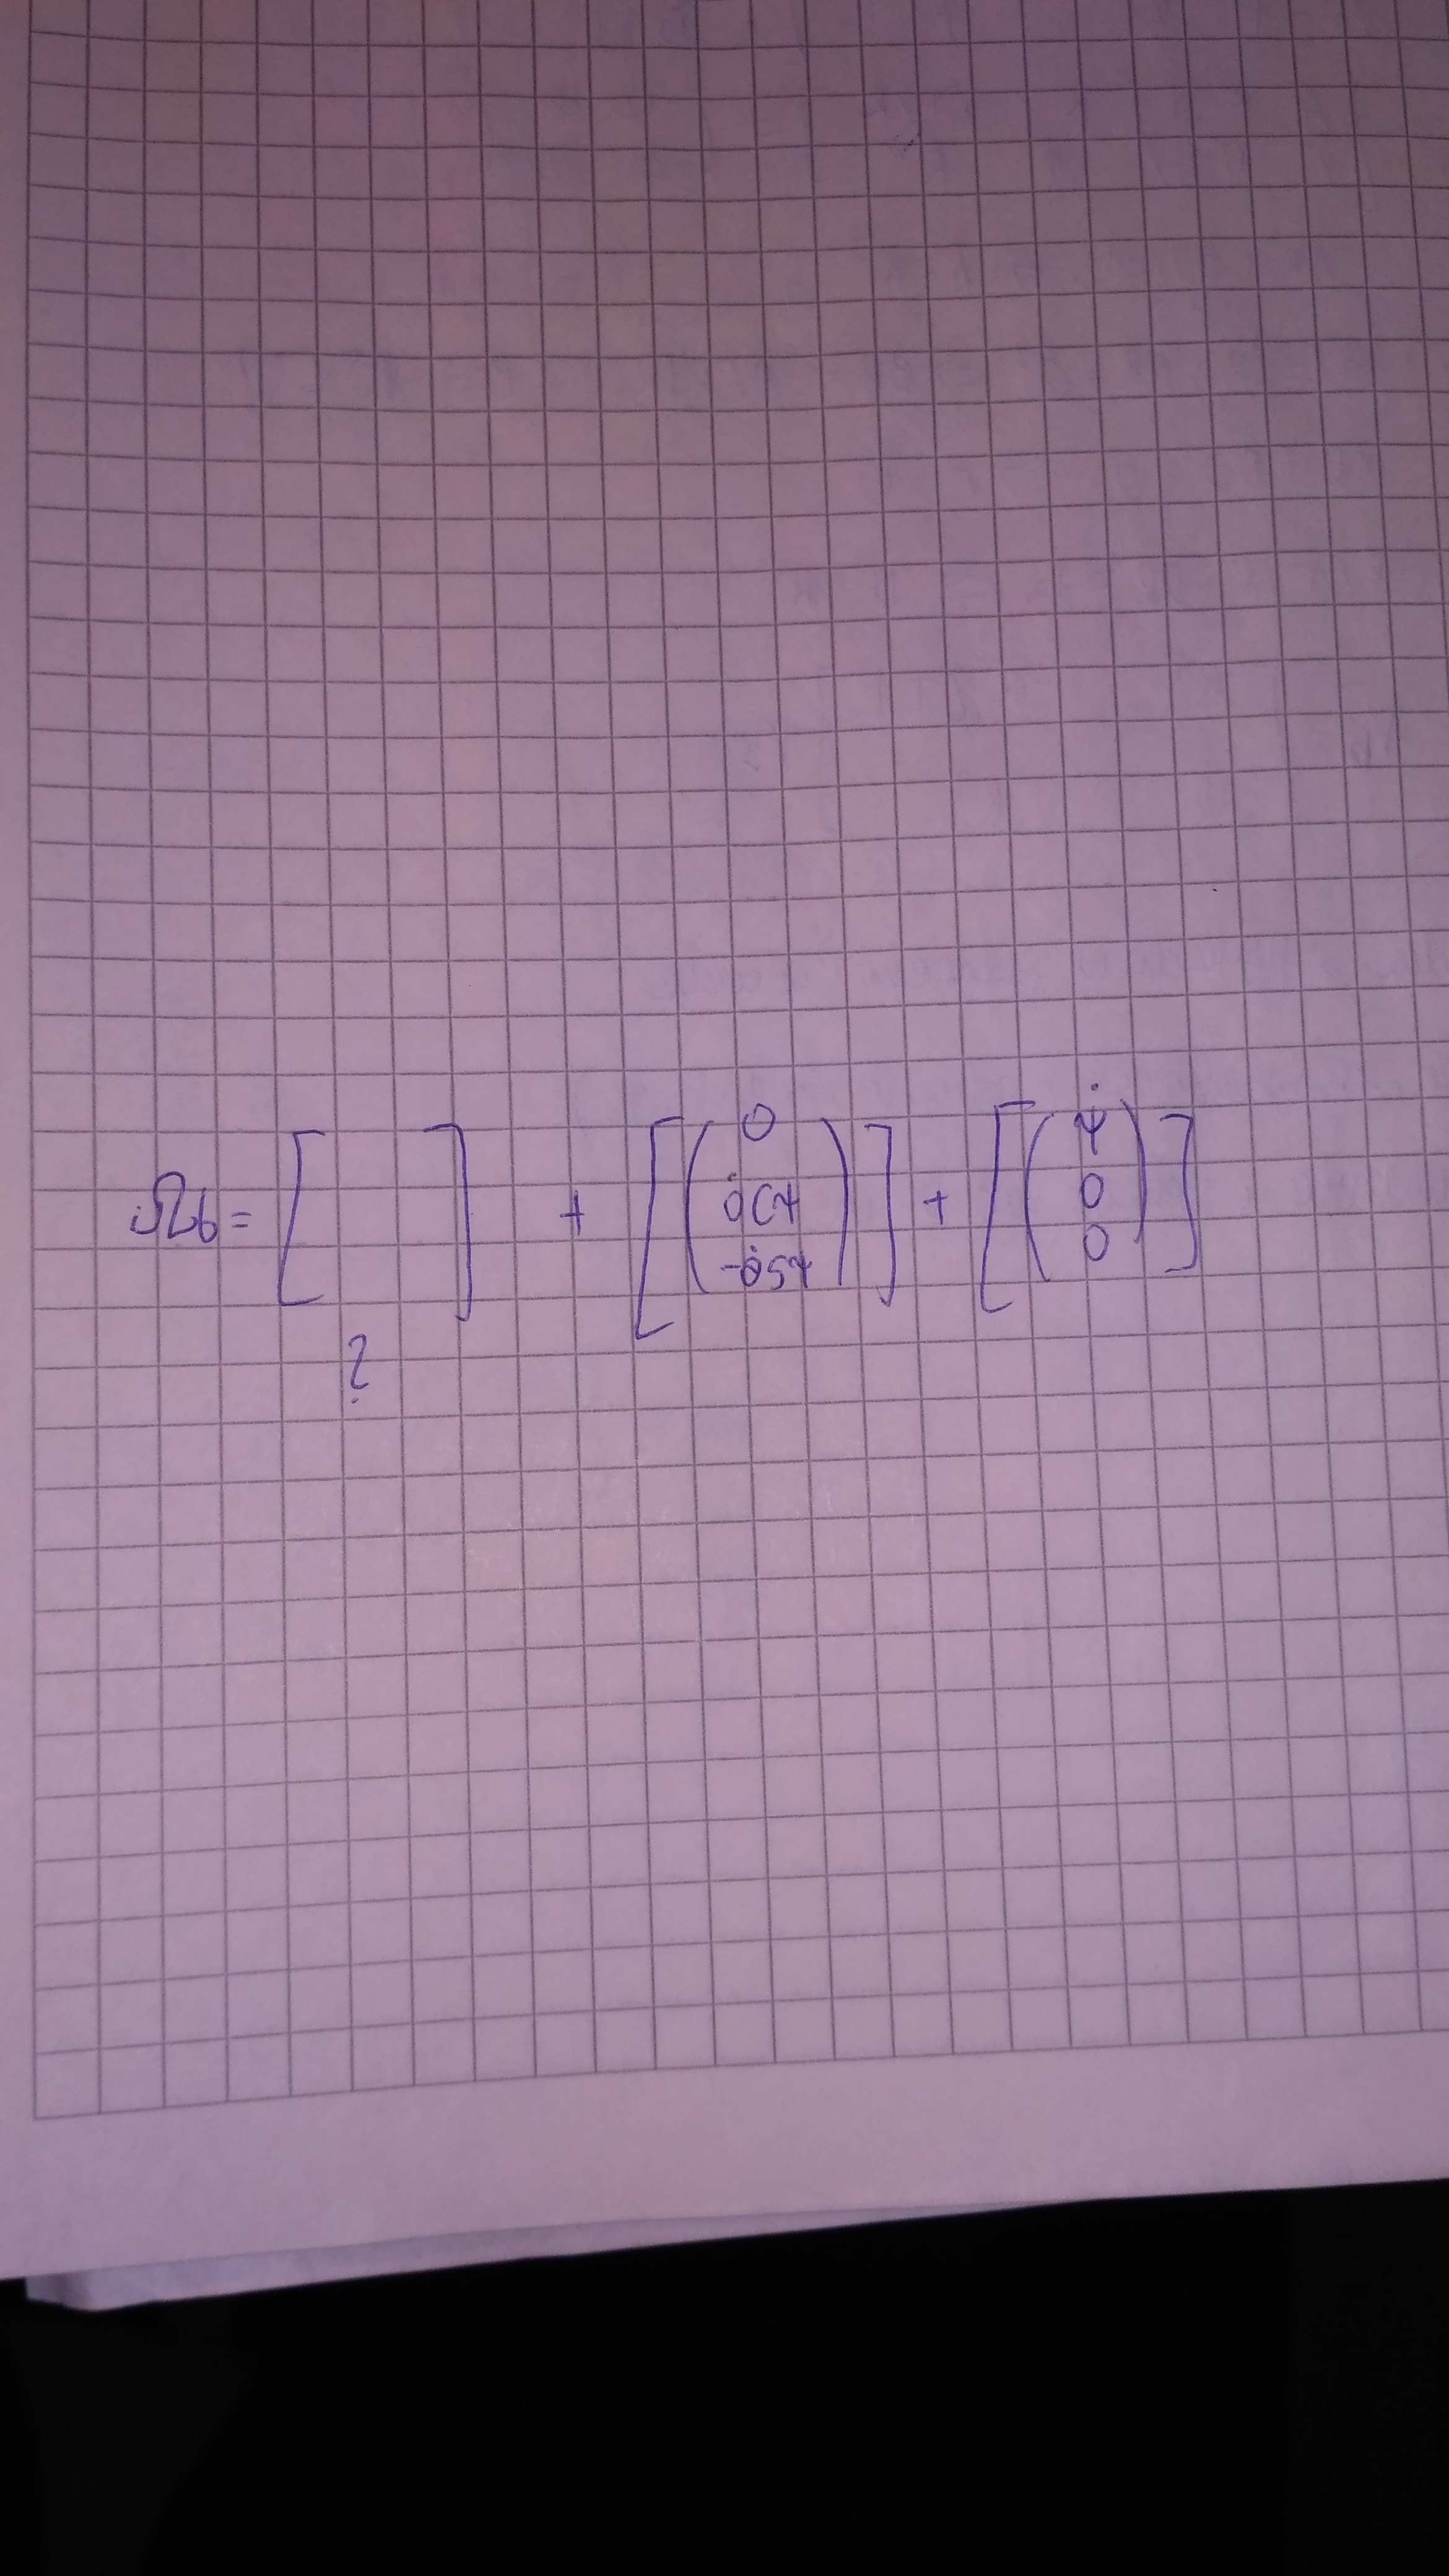 Ωb = [ ] + [ ( 0 θ̇cψ -θ̇sψ ) ] + [ ( ψ̇ 0 0 ) ]
?